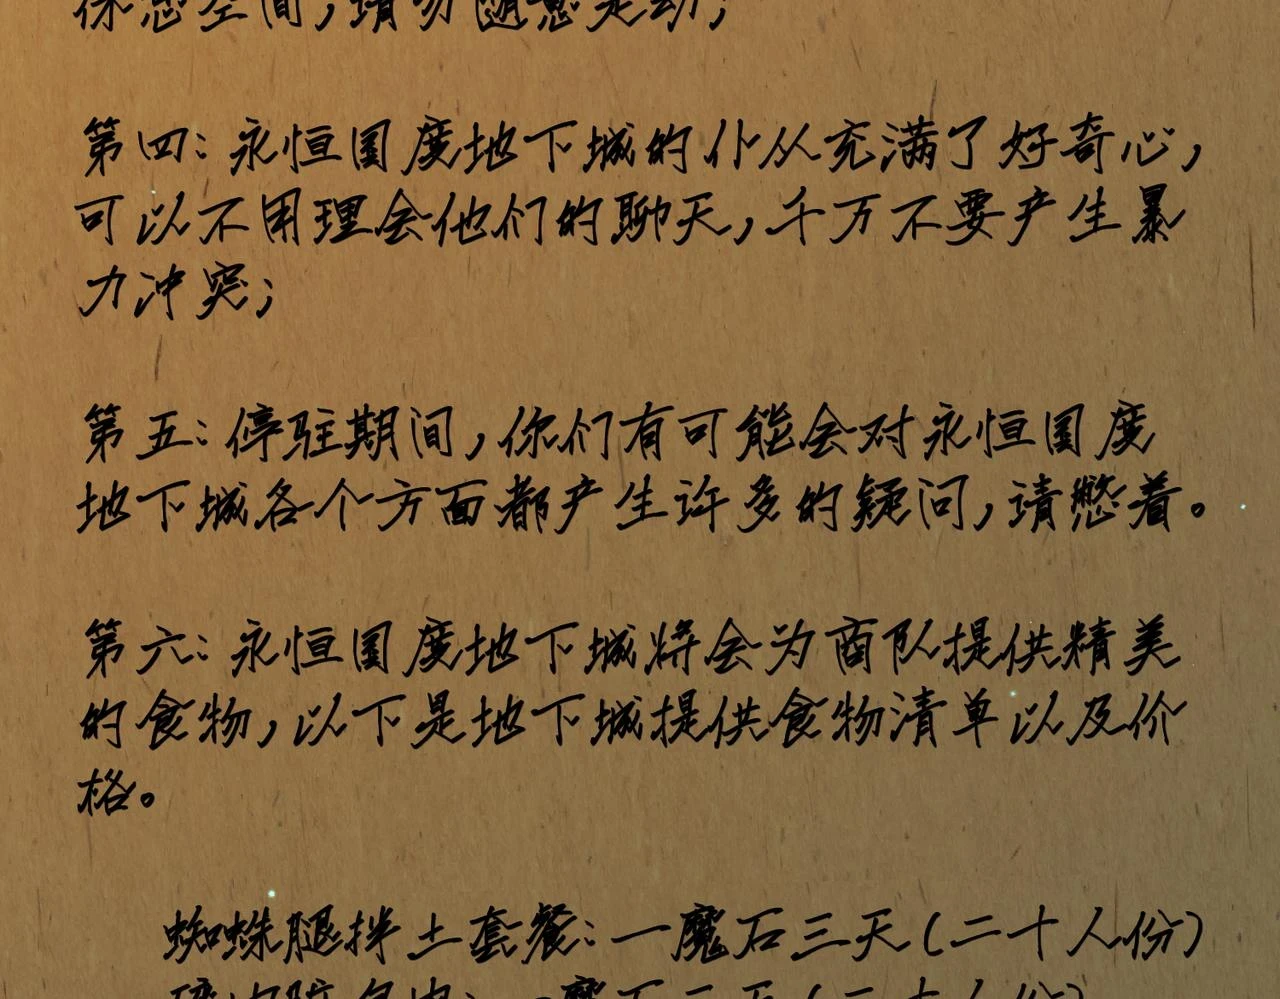 休憩空间，请勿随意走动；
第四：永恒国度地下城的仆从充满了好奇心，
可以不用理会他们的聊天，千万不要产生暴
力冲突；
第五：停驻期间，你们有可能会对永恒国度
地下城各个方面都产生许多的疑问，请憋着。
第六：永恒国度地下城将会为商队提供精美
的食物，以下是地下城提供食物清单以及价
格。
蜘蛛腿拌土套餐：一魔石三天（二十人份）
一魔石二天（二十人份）